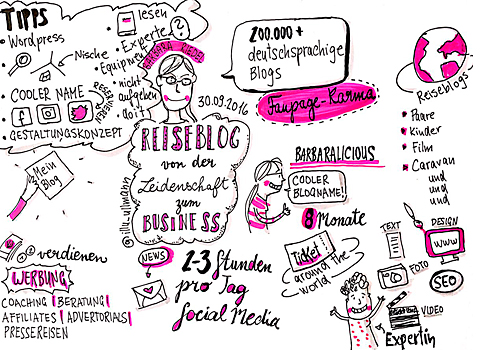 TIPPS
• Wordpress
• Nische
• lesen
• Experte ?
• Equipment
• COOLER NAME
f
• GESTALTUNGSKONZEPT
• nicht
aufgeben
BARBARA RIEDEL
30.09.2016
REISEBLOG
von der
Leidenschaft
zum
BUSINESS
@illu_ullmann
200.000 +
deutschsprachige
Blogs
Fanpage-Karma
Reiseblogs
• Paare
• Kinder
• Film
• Caravan
und
und
und
BARBARALICIOUS
COOLER
BLOGNAME!
8 Monate
Ticket
around the
world
Mein
Blog
verdienen
WERBUNG
COACHING | BERATUNG |
AFFILIATES | ADVERTORIALS |
PRESSEREISEN
NEWS
2-3 Stunden
pro Tag
Social Media
TEXT
DESIGN
WWW
FOTO
SEO
VIDEO
Expertin